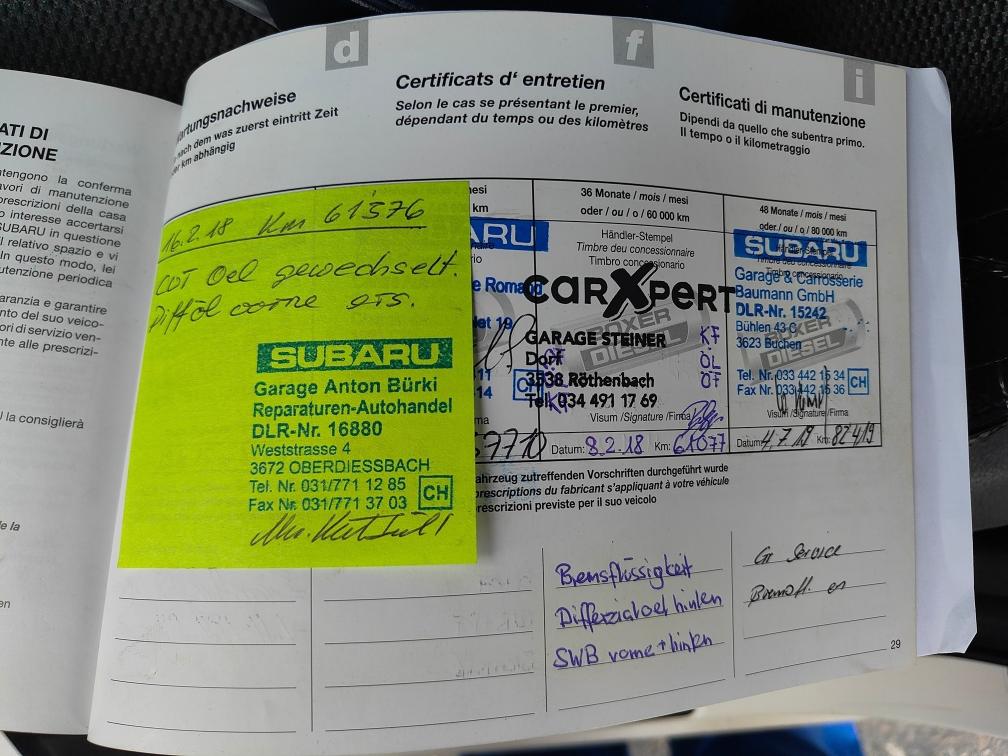 ATI DI
ZIONE
ntengono la conferma
avori di manutenzione
prescrizioni della casa
o interesse accertarsi
SUBARU in questione
l relativo spazio e vi
In questo modo, lei
utenzione periodica
aranzia e garantire
nto del suo veico-
ori di servizio ven-
nte alle prescrizi-
U la consiglierà
de la
en
d
f
i
artungsnachweise
nach dem was zuerst eintritt Zeit
der km abhängig
Certificats d‘ entretien
Selon le cas se présentant le premier,
dépendant du temps ou des kilomètres
Certificati di manutenzione
Dipendi da quello che subentra primo.
Il tempo o il kilometraggio
16.2.18 Km 61'376
CVT Oel gewechselt.
Difföl vorne ers.
SUBARU
Garage Anton Bürki
Reparaturen-Autohandel
DLR-Nr. 16880
Weststrasse 4
3672 OBERDIESSBACH
Tel. Nr. 031/771 12 85
Fax Nr. 031/771 37 03
CH
mesi
km
ARU
e Romang
let 19
11
14
CH
rma
57710
36 Monate / mois / mesi
oder / ou / o / 60 000 km
Händler-Stempel
Timbre deu concessionnaire
Timbro concessionario
carXpert
BOXER
DIESEL
GARAGE STEINER
Dorf
3538 Röthenbach
Tel. 034 491 17 69
KF
ÖL
ÖF
Visum /Signature /Firma
Datum: 8.2.18 Km: 61077
48 Monate / mois / mesi
oder / ou / o / 80 000 km
SUBARU
Händler-Stempel
Timbre deu concessionnaire
Timbro concessionario
Garage & Carrosserie
Baumann GmbH
DLR-Nr. 15242
Bühlen 43 C
3623 Buchen
BOXER
DIESEL
Tel. Nr. 033 442 15 34
Fax Nr. 033 442 15 36
CH
Visum /Signature /Firma
Datum: 4.7.19 Km: 82419
ahrzeug zutreffenden Vorschriften durchgeführt wurde
prescriptions du fabricant s‘appliquant à votre véhicule
prescrizioni previste per il suo veicolo
Bremsflüssigkeit
Differzialoel hinten
SWB vorne + hinten
Gr Service
Bremsfl. er
29